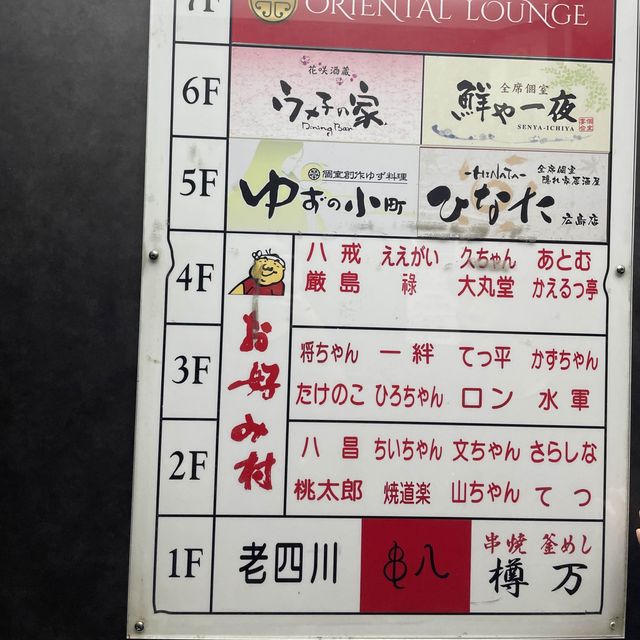 7F
ORIENTAL LOUNGE
6F
花咲酒蔵
ウメ子の家
Dining Bar
全席個室
鮮や一夜
SENYA-ICHIYA
5F
個室創作ゆず料理
ゆずの小町
HINATA
全席個室
隠れ家居酒屋
ひなた
広島店
4F
八戒 ええがい 久ちゃん あとむ
厳島 祿 大丸堂 かえるっ亭
お好み村
3F
将ちゃん 一絆 てっ平 かずちゃん
たけのこ ひろちゃん ロン 水軍
2F
八昌 ちいちゃん 文ちゃん さらしな
桃太郎 焼道楽 山ちゃん てつ
1F
老四川
八
串焼 釜めし
樽万